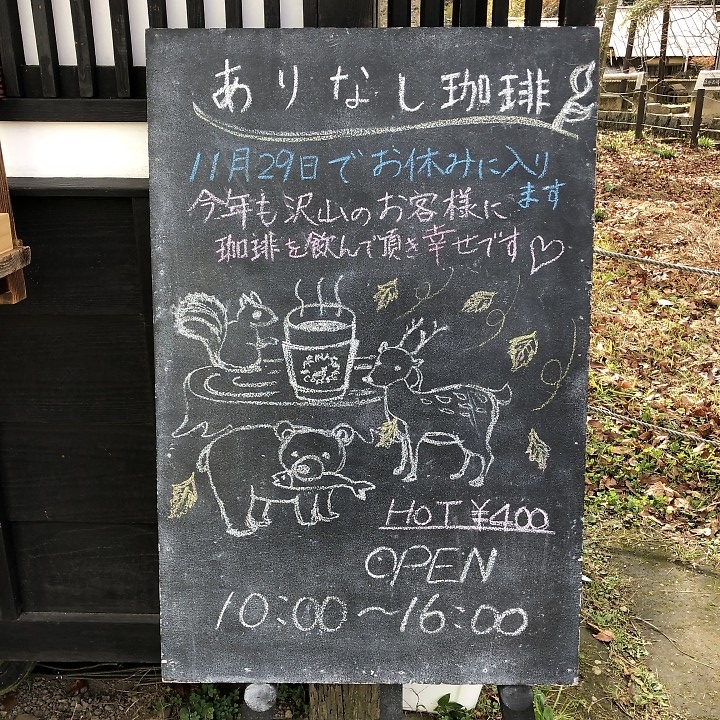 ありなし珈琲
11月29日でお休みに入り
ます
今年も沢山のお客様に
珈琲を飲んで頂き幸せです♡
COFFEE
HOT ¥400
OPEN
10:00〜16:00